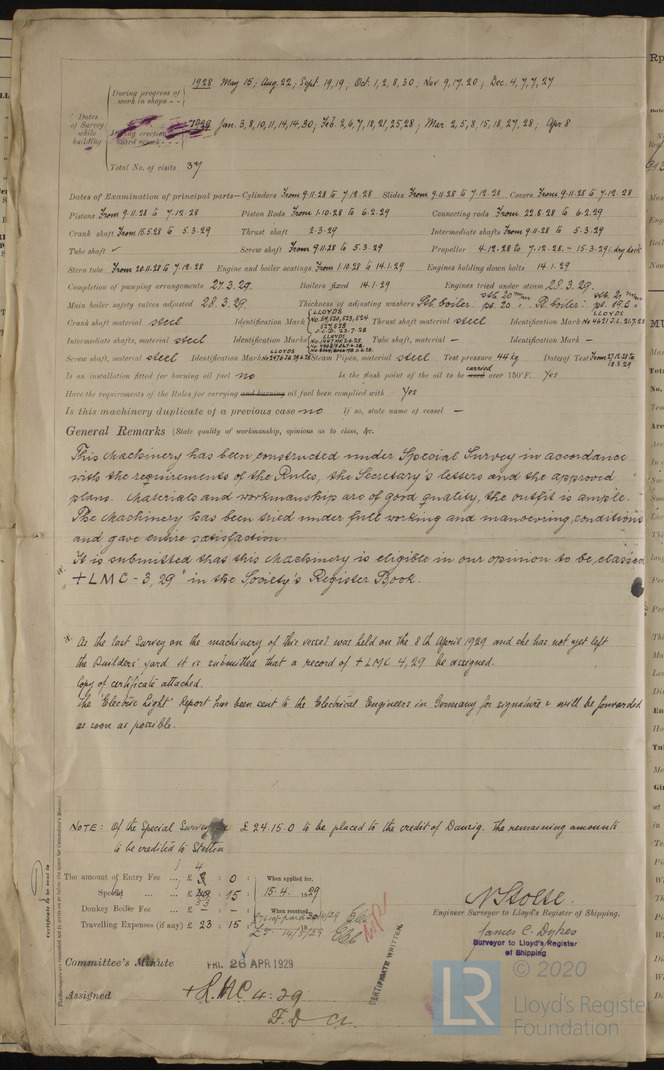 1928 May 15; Aug. 22; Sept. 19, 19; Oct. 1, 2, 8, 30; Nov 9, 17. 20; Dec. 4, 7, 7, 27
During progress of work in shops - -
Dates of Survey while building
1929 Jan. 3, 8, 10, 11, 14, 14, 30; Feb. 2, 6, 7, 18, 21, 25, 28; Mar. 2, 5, 8, 15, 18, 27, 28; Apr 8
Total No. of visits 37
Dates of Examination of principal parts—Cylinders From 9.11.28 to 7.12.28 Slides From 9.11.28 to 7.12.28 Covers From 9.11.28 to 7.12.28
Pistons From 9.11.28 to 7.12.28 Piston Rods From 1.10.28 to 6.2.29 Connecting rods From 22.8.28 to 6.2.29
Crank shaft From 15.5.28 to 5.3.29 Thrust shaft 2.3.29 Intermediate shafts From 9.11.28 to 5.3.29
Tube shaft ✓ Screw shaft From 9.11.28 to 5.3.29 Propeller 4.12.28 to 7.12.28 - 15.3.29 i. dry dock
Stern tube From 20.11.28 to 7.12.28 Engine and boiler seatings From 1.10.28 to 14.1.29 Engines holding down bolts 14.1.29
Completion of pumping arrangements 27.3.29. Boilers fixed 14.1.29 Engines tried under steam 28.3.29.
Main boiler safety valves adjusted 28.3.29. Thickness of adjusting washers
Crank shaft material steel Identification Mark LLOYDS Thrust shaft material steel Identification Mark LLOYDS No 4631 J.L. 21.7.28
Intermediate shafts, material steel Identification Marks LLOYDS Tube shaft, material — Identification Mark —
Screw shaft, material steel Identification Mark LLOYDS Steam Pipes, material steel Test pressure 44 kg Date of Test From 27.12.28 to 18.3.29
Is an installation fitted for burning oil fuel no Is the flash point of the oil to be used carried over 150°F. Yes
Have the requirements of the Rules for carrying and burning oil fuel been complied with Yes
Is this machinery duplicate of a previous case no If so, state name of vessel —
General Remarks (State quality of workmanship, opinions as to class, &c.
This Machinery has been constructed under Special Survey in accordance
with the requirements of the Rules, the Secretary's letters and the approved
plans. Materials and workmanship are of good quality, the outfit is ample.
The Machinery has been tried under full working and manoevring conditions
and gave entire satisfaction.
It is submitted that this Machinery is eligible in our opinion to be classed
+ LMC - 3, 29" in the Society's Register Book.
As the last Survey on the machinery of this vessel was held on the 8th April 1929 and she has not yet left
the Builders' yard it is submitted that a record of + LMC 4, 29 be assigned.
Copy of certificate attached.
The 'Electric Light' Report has been sent to the Electrical Engineers in Germany for signature & will be forwarded
as soon as possible.
NOTE: Of the Special Survey fee £ 24.15.0 to be placed to the credit of Danzig. The remaining amounts
to be credited to Stettin
The amount of Entry Fee ... £ 4 : 0 : When applied for,
Special ... ... £ : 15 : 15.4. 1929
Donkey Boiler Fee ... £ — : — : When received,
Travelling Expenses (if any) £ 23 : 15 :
N Stolte.
Engineer Surveyor to Lloyd's Register of Shipping.
James C. Dykes
Surveyor to Lloyd's Register of Shipping
CERTIFICATE WRITTEN.
Committee's Minute FRI. 26 APR 1929
Assigned + L.M.C 4.29
F.D Cl.
Certificate to be sent to
© 2020
LR Lloyd's Register Foundation